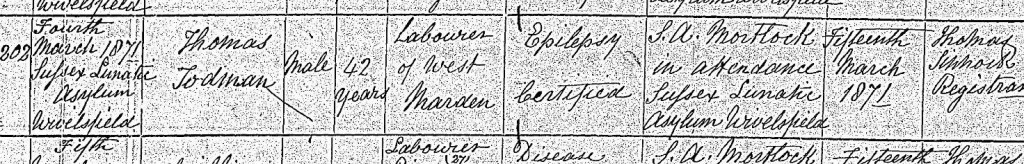 Wivelsfield
302
Fourth
March 1871
Sussex Lunatic
Asylum
Wivelsfield
Thomas
Todman
Male
42
Years
Labourer
of West
Marden
Epilepsy
Certified
S. A. Mortlock
in attendance
Sussex Lunatic
Asylum Wivelsfield
Fifteenth
March
1871
Thomas
Registrar
Fifth
Labourer
Disease
S. A. Mortlock
Fifteenth
Thomas